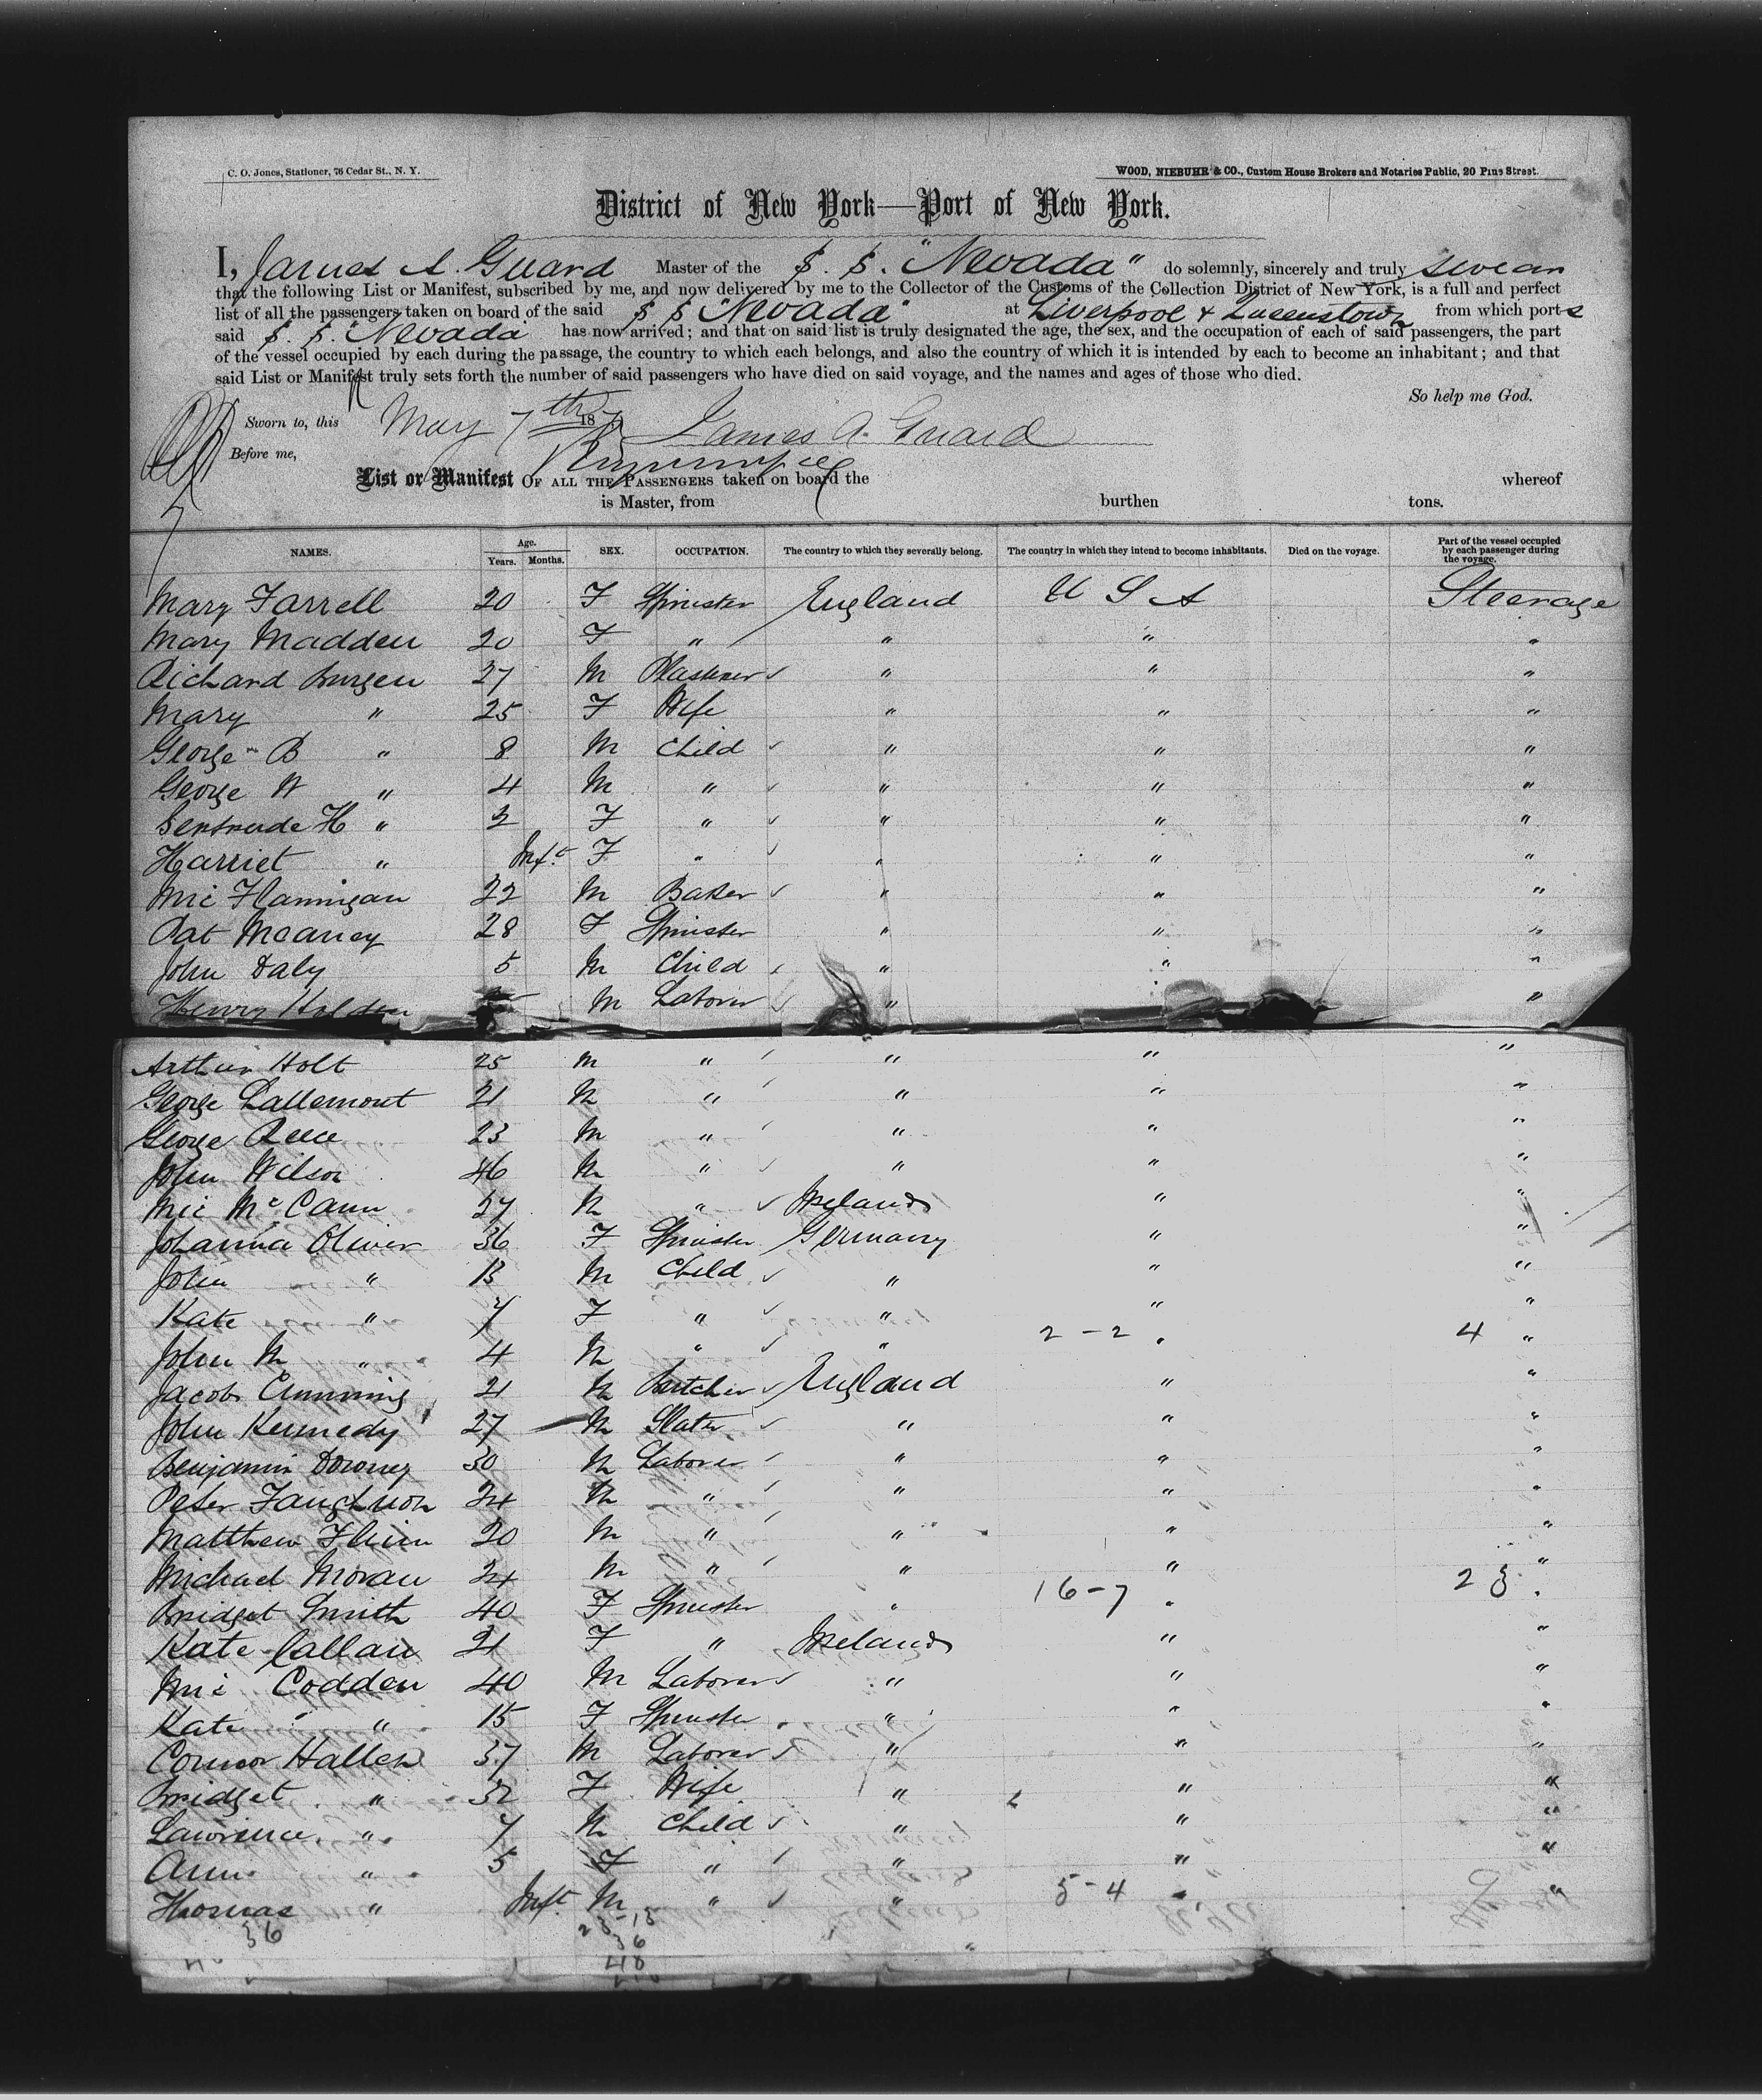 C. O. Jones, Stationer, 76 Cedar St., N. Y.
WOOD, NIEBUHR & CO., Custom House Brokers and Notaries Public, 20 Pine Street.
District of New York—Port of New York.
I, James A. Guard Master of the S. S. "Nevada" do solemnly, sincerely and truly swear
that the following List or Manifest, subscribed by me, and now delivered by me to the Collector of the Customs of the Collection District of New York, is a full and perfect
list of all the passengers taken on board of the said S S "Nevada" at Liverpool & Queenstown from which ports
said S. S. "Nevada" has now arrived; and that on said list is truly designated the age, the sex, and the occupation of each of said passengers, the part
of the vessel occupied by each during the passage, the country to which each belongs, and also the country of which it is intended by each to become an inhabitant; and that
said List or Manifest truly sets forth the number of said passengers who have died on said voyage, and the names and ages of those who died.
So help me God.
Sworn to, this May 7th 187 James A. Guard
Before me,
List or Manifest OF ALL THE PASSENGERS taken on board the whereof
is Master, from burthen tons.
NAMES. Age. Years. Months. SEX. OCCUPATION. The country to which they severally belong. The country in which they intend to become inhabitants. Died on the voyage. Part of the vessel occupied by each passenger during the voyage.
Mary Farrell 20 F Spinster England U S A Steerage
Mary Madden 20 F " " " "
Richard Burgen 27 M Plasterer " " "
Mary " 25 F Wife " " "
George B " 8 M Child " " "
George W " 4 M " " " "
Gertrude H " 2 F " " " "
Harriet " Inft F " " " "
Mic Flannigan 22 M Baker " " "
Pat Meaney 28 F Spinster " " "
John Daly 5 M Child " " "
Henry Holden M Laborer " "
Arthur Holt 25 M " " " "
George Lallemont 21 M " " " "
George Reece 23 M " " " "
John Wilson 46 M " " " "
Mic McCann 27 M " Ireland " "
Johanna Oliver 36 F Spinster Germany " "
John " 13 M Child " " "
Kate " 7 F " " " "
John M " 4 M " " 2-2 " 4 "
Jacob Cumming 21 M Butcher England " "
John Kennedy 27 M Slater " " "
Benjamin Downey 30 M Laborer " " "
Peter Faughnon 24 M " " " "
Matthew Flinn 20 M " " " "
Michael Moran 24 M " " " "
Bridget Smith 40 F Spinster " 16-7 " 23 "
Kate Callan 21 F " Ireland " "
Mic Codden 40 M Laborer " " "
Kate " 15 F Spinster " " "
Connor Hallen 37 M Laborer " " "
Bridget " 32 F Wife " " "
Lawrence " 7 M Child " " "
Ann " 5 F " " " "
Thomas " Inft M " " 5-4 " 9 "
36 23-13
36